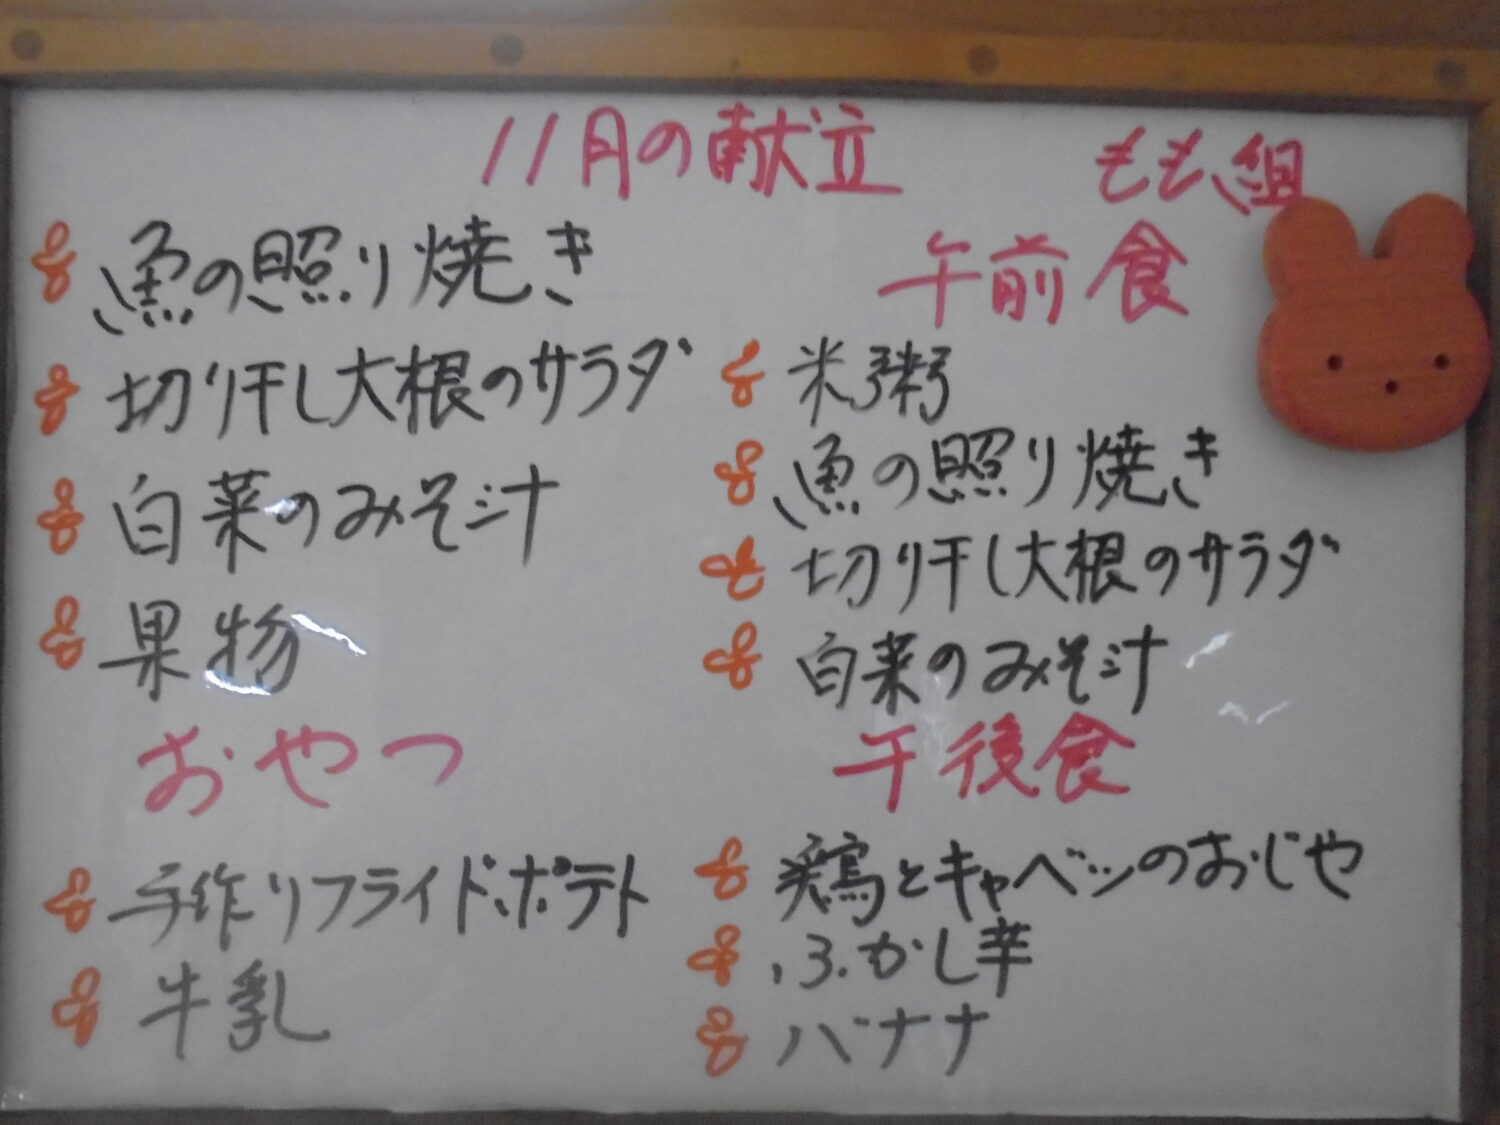 11月の献立
魚の照り焼き
切り干し大根のサラダ
白菜のみそ汁
果物
おやつ
手作りフライドポテト
牛乳
もも組
午前食
米粥
魚の照り焼き
切り干し大根のサラダ
白菜のみそ汁
午後食
鶏とキャベツのおじや
ふかし芋
バナナ